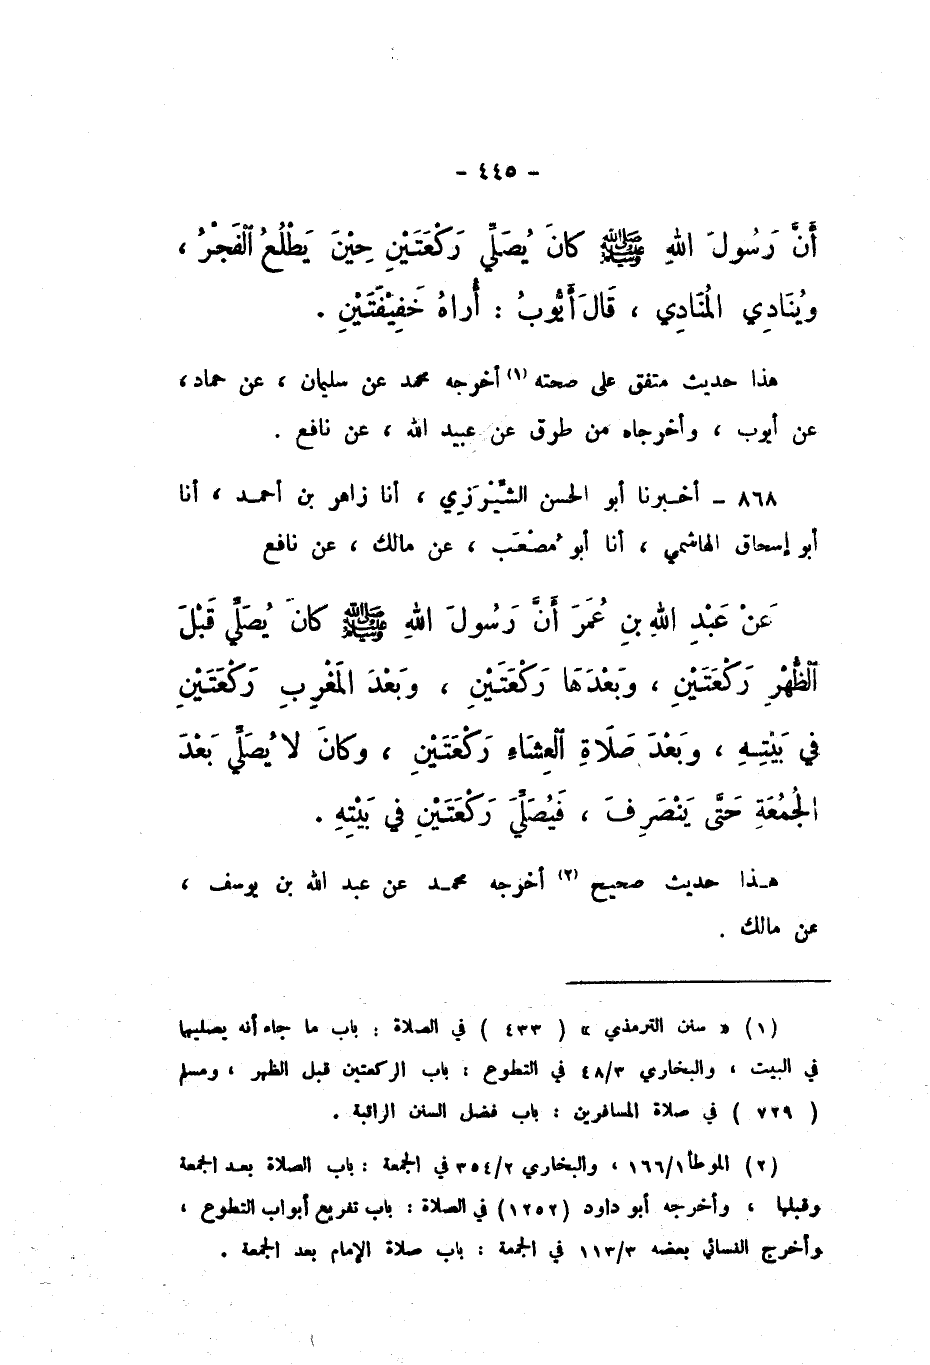 - ٤٤٥ -
أَنَّ رَسُولَ اللهِ ﷺ كانَ يُصَلِّي رَكْعَتَيْنِ حِيْنَ يَطْلُعُ ٱلْفَجْرُ ،
ويُنَادِي المُنَادِي ، قَالَ أَيُّوبُ : أُراهُ خَفِيْفَتَيْنِ .
هذا حديث متفق على صحته (١) أخرجه محمد عن سليمان ، عن حماد ،
عن أيوب ، وأخرجاه من طرق عن عبيد الله ، عن نافع .
٨٦٨ – أخبرنا أبو الحسن الشِّيْرَزِي ، أنا زاهر بن أحمد ، أنا
أبو إسحاق الهاشمي ، أنا أبو مُصْعَب ، عن مالك ، عن نافع
عَنْ عَبْدِ اللهِ بنِ عُمَرَ أَنَّ رَسُولَ اللهِ ﷺ كانَ يُصَلِّي قَبْلَ
ٱلظُّهْرِ رَكْعَتَيْنِ ، وبَعْدَهَا رَكْعَتَيْنِ ، وبَعْدَ المَغْرِبِ رَكْعَتَيْنِ
في بَيْتِهِ ، وبَعْدَ صَلَاةِ ٱلْعِشَاءِ رَكْعَتَيْنِ ، وكانَ لا يُصَلِّي بَعْدَ
الجُمُعَةِ حَتَّى يَنْصَرِفَ ، فَيُصَلِّيَ رَكْعَتَيْنِ في بَيْتِهِ .
هذا حديث صحيح (٢) أخرجه محمد عن عبد الله بن يوسف ،
عن مالك .
(١) « سنن الترمذي » ( ٤٣٣ ) في الصلاة : باب ما جاء أنه يصليها
في البيت ، والبخاري ٤٨/٣ في التطوع : باب الركعتين قبل الظهر ، ومسلم
( ٧٢٩ ) في صلاة المسافرين : باب فضل السنن الراتبة .
(٢) الموطأ ١٦٦/١ ، والبخاري ٣٥٤/٢ في الجمعة : باب الصلاة بعد الجمعة
وقبلها ، وأخرجه أبو داود (١٢٥٢) في الصلاة : باب تفريع أبواب التطوع ،
وأخرج النسائي بعضه ١١٣/٣ في الجمعة : باب صلاة الإمام بعد الجمعة .